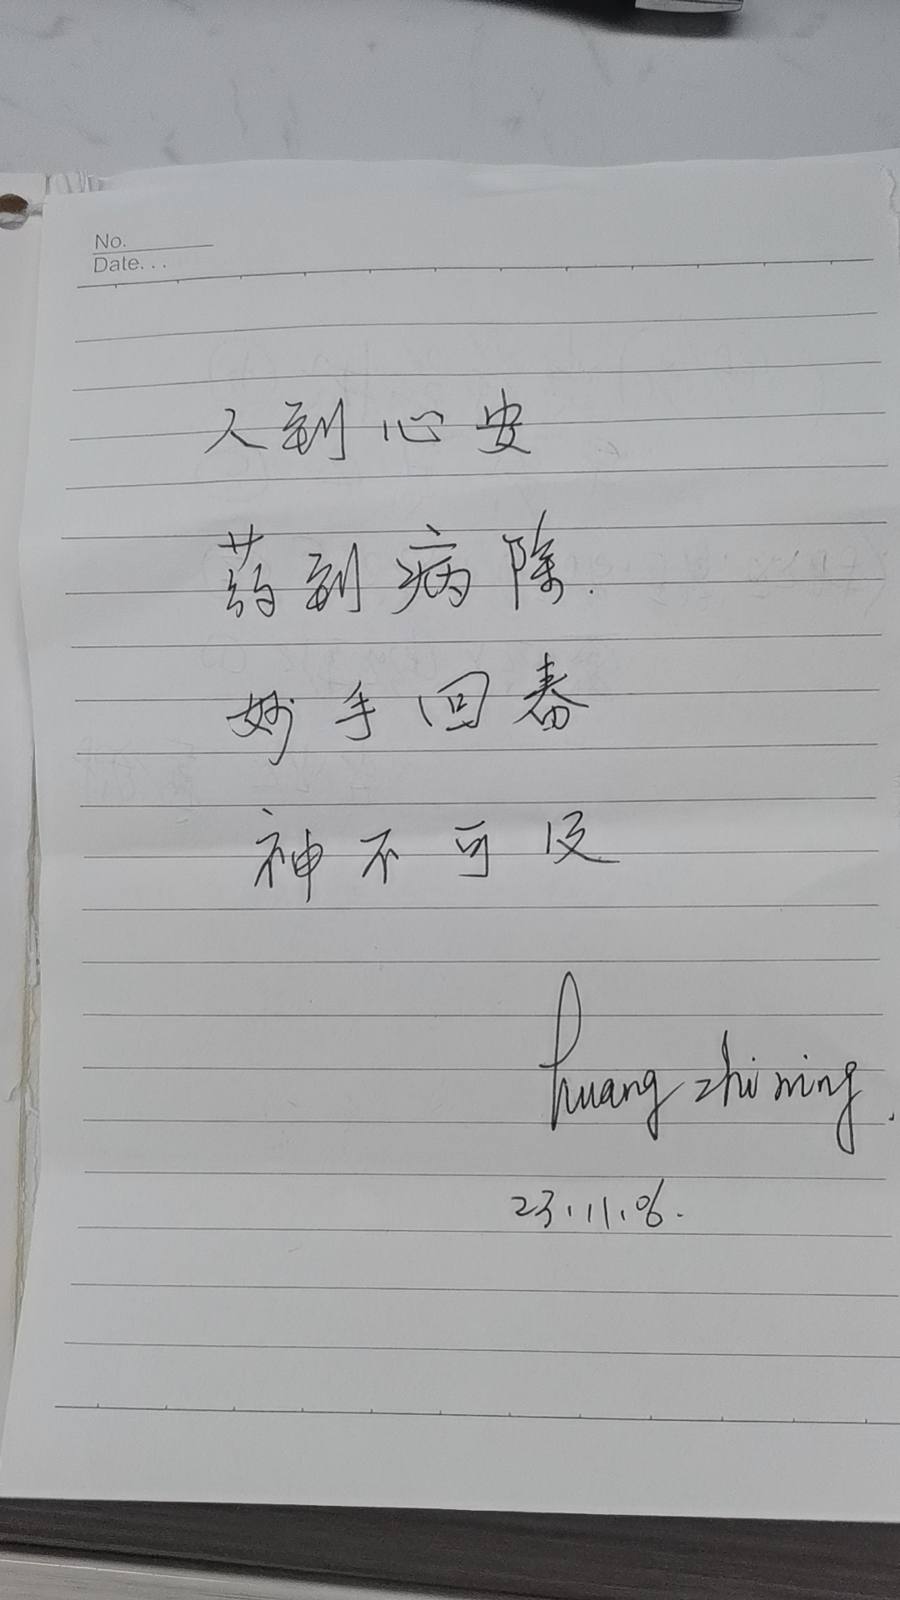 No.
Date...
人到心安
药到病除.
妙手回春
神不可及
huang zhi ning.
23.11.06.